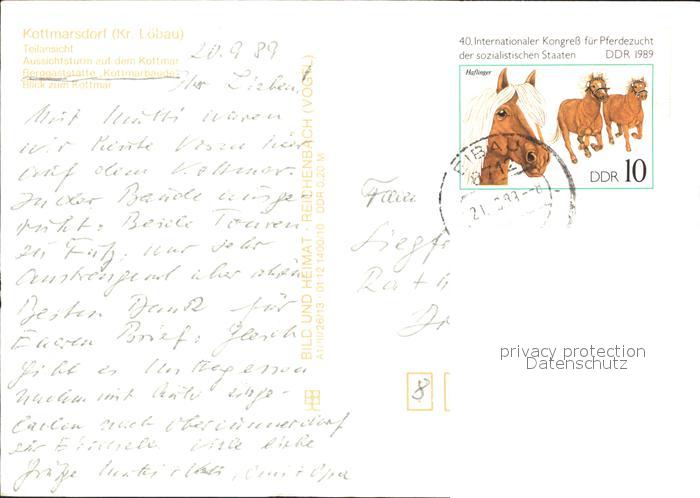 Kottmarsdorf (Kr. Löbau)
Teilansicht
Aussichtsturm auf dem Kottmar
Berggaststätte "Kottmarbaude"
Blick zum Kottmar
20.9.89
Ihr Lieben!
Mit Mutti waren
wir heute
auf dem Kottmar.
In der Baude ausge-
ruht. Beide Touren
zu Fuß, nur sehr
anstrengend aber schön
Besten Dank für
Euren Brief. Gleich
gibt es Mittagessen
mit Auto einge-
laden nach Obercunnersdorf
zur Eisdiele. Viele liebe
Grüße Mutti + Omi + Opa
BILD UND HEIMAT · REICHENBACH (VOGTL)
A1/III/26/13 · 01 12 1400/10 DDR 0,20 M
40. Internationaler Kongreß für Pferdezucht
der sozialistischen Staaten DDR 1989
Haflinger
DDR 10
EIBAU
21. 9.89-8
Frau
Siegf
8
privacy protection
Datenschutz